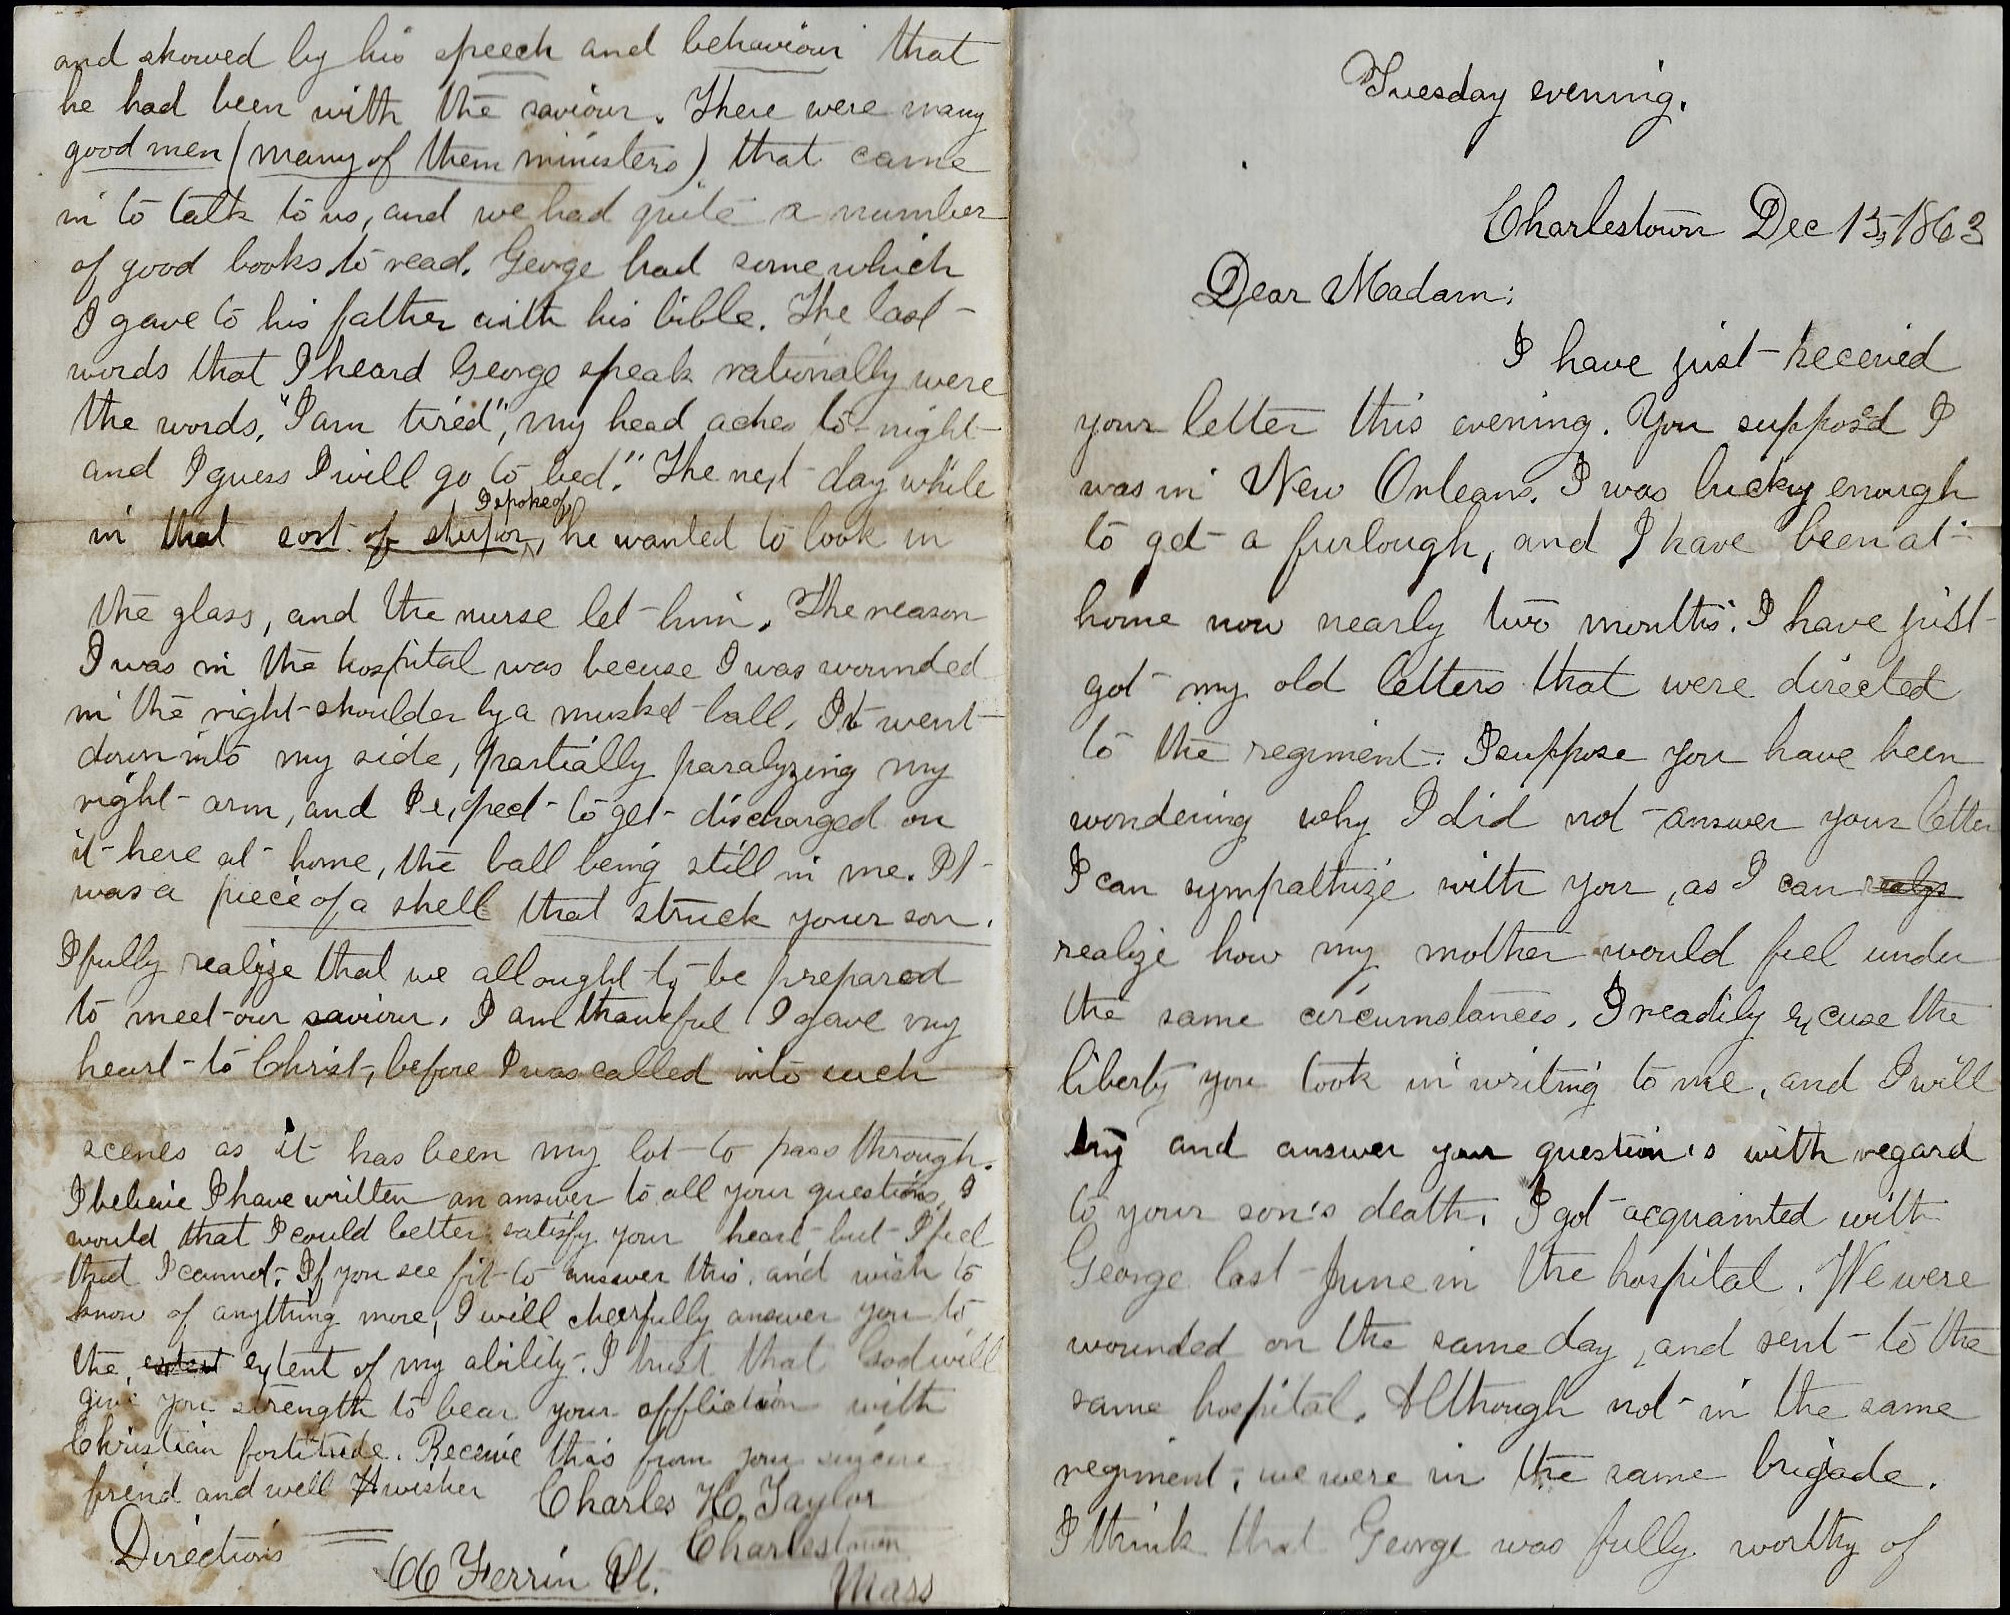 Tuesday evening.
Charlestown Dec 15, 1863
Dear Madam;
I have just received
your letter this evening. You suppos'd I
was in New Orleans. I was lucky enough
to get a furlough, and I have been at
home now nearly two months. I have just
got my old letters that were directed
to the regiment. I suppose you have been
wondering why I did not answer your letter
I can sympathize with you, as I can
realize how my mother would feel under
the same circumstances. I readily excuse the
liberty you took in writing to me, and I will
try and answer your question's with regard
to your son's death. I got acquainted with
George last June in the hospital. We were
wounded on the same day, and sent to the
same hospital. Although not in the same
regiment, we were in the same brigade.
I think that George was fully worthy of
and showed by his speech and behaviour that
he had been with the saviour. There were many
good men (many of them ministers) that came
in to talk to us, and we had quite a number
of good books to read. George had some which
I gave to his father with his bible. The last
words that I heard George speak rationally were
the words, "I am tired", my head aches to-night
and I guess I will go to bed." The next day while
in that sort of stupor, I spoke of, he wanted to look in
the glass, and the nurse let him. The reason
I was in the hospital was becuse I was wounded
in the right shoulder by a musket ball. It went
down into my side, partially paralyzing my
right arm, and I expect to get discharged on
it here at home, the ball being still in me. It
was a piece of a shell that struck your son.
I fully realize that we all ought to be prepared
to meet our saviour. I am thankful I gave my
heart to Christ, before I was called into such
scenes as it has been my lot to pass through.
I believe I have written an answer to all your questions, I
would that I could better satisfy your heart but I feel
that I cannot. If you see fit to answer this, and wish to
know of anything more, I will cheerfully answer you to
the extent extent of my ability. I trust that God will
give you strength to bear your affliction with
Christian fortitude. Receive this from your sincere
friend and well wisher Charles H. Taylor
Directions Charlestown
66 Ferrin St. Mass